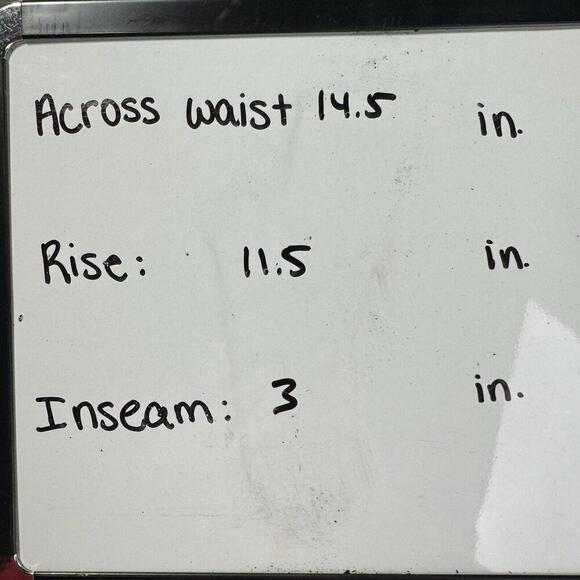 Across waist 14.5 in.
Rise: 11.5 in.
Inseam: 3 in.